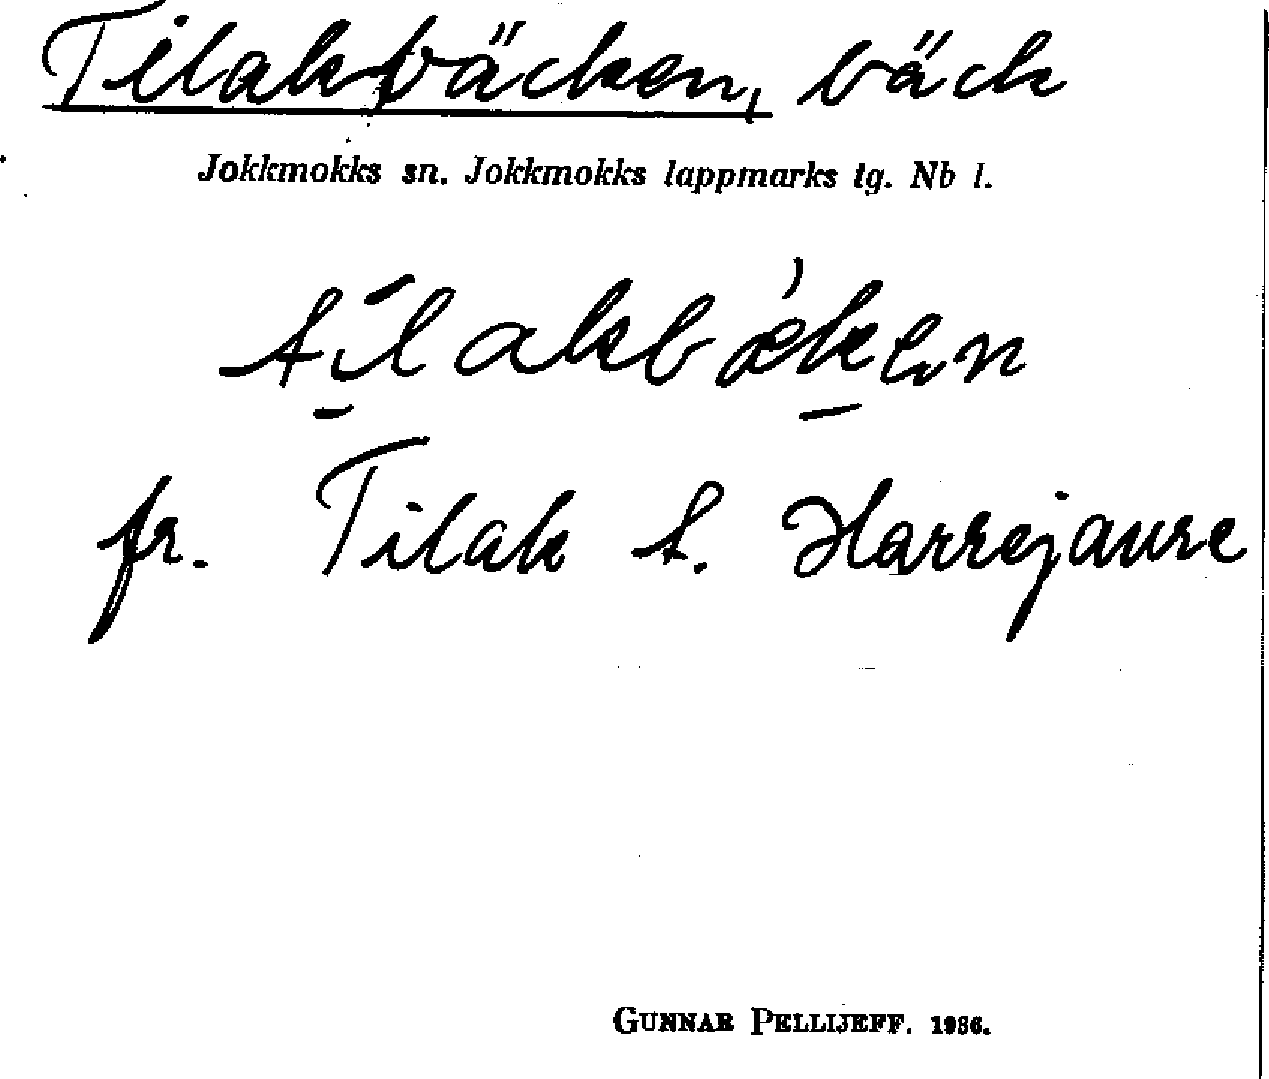 Tilakbäcken, bäck
Jokkmokks sn. Jokkmokks lappmarks tg. Nb l.
tìlakbǽken
fr. Tilak t. Harrejaure
GUNNAR PELLIJEFF. 1936.